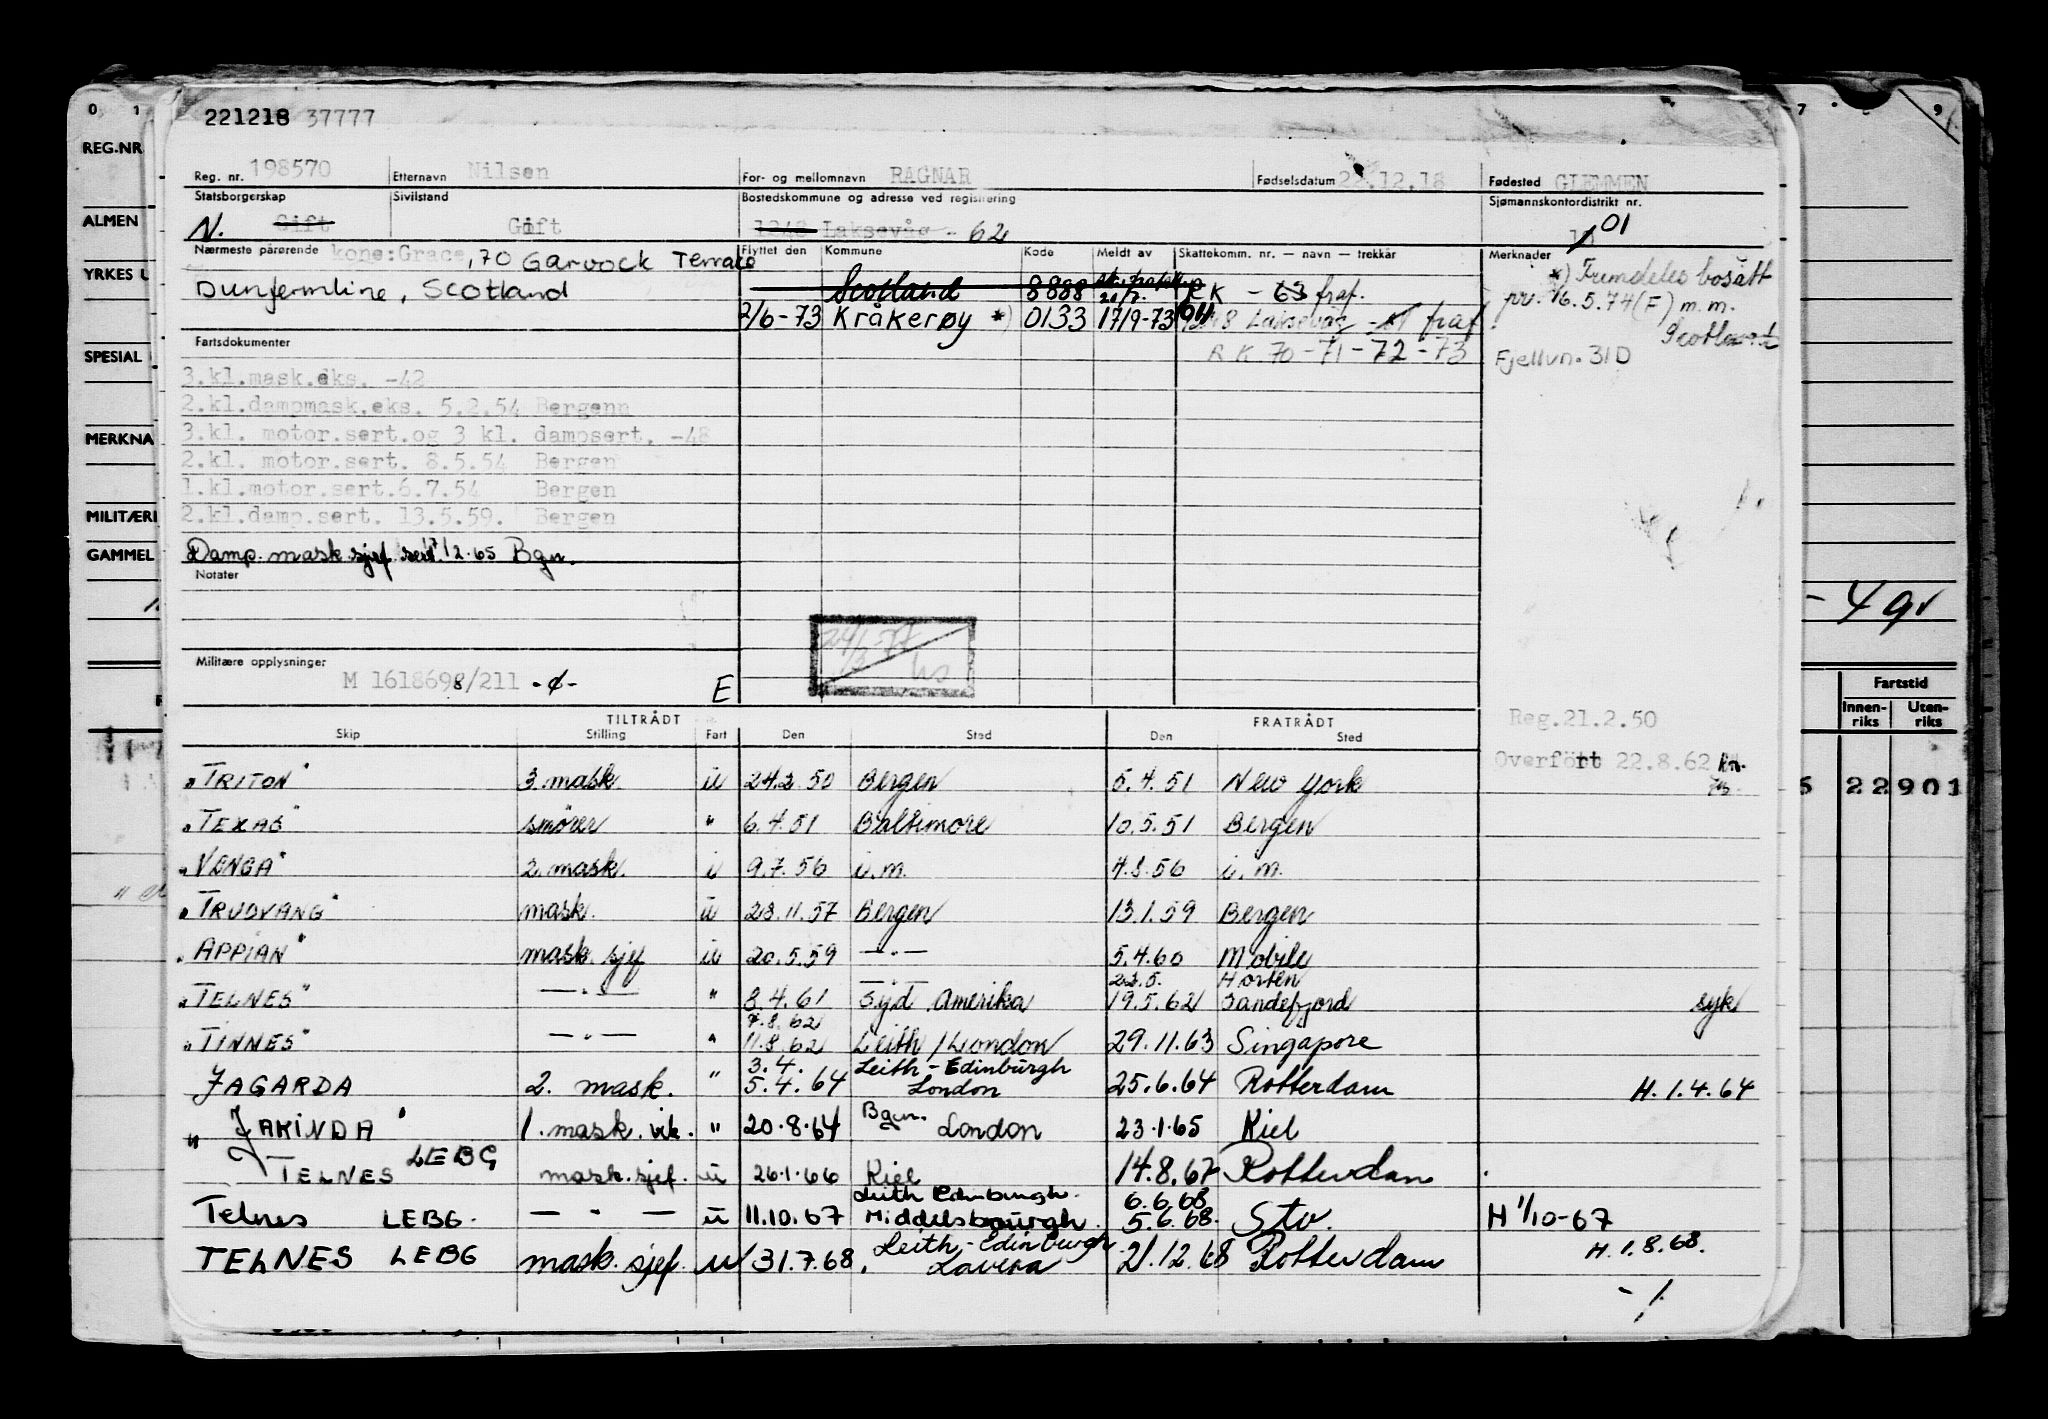 221218 37777
0 1 7 9
REG.NR
ALMEN
YRKES U
SPESIAL
MERKNA
MILITÆRE
GAMMEL
Reg. nr. 198570 Etternavn Nilsen For- og mellomnavn RAGNAR Fødselsdatum 22.12.18 Fødested GLEMMEN
Statsborgerskap Sivilstand Bostedskommune og adresse ved registrering Sjømannskontordistrikt nr.
N. Gift Gift 1248 Laksevåg - 62 10 01
Nærmeste pårørende kone: Grace, 70 Garvock Terrace Flyttet den Kommune Kode Meldt av Skattekomm. nr. — navn — trekkår Merknader
Dunfermline, Scotland Scotland 8888 21/7. RK - 63 fraf.
*) Fremdeles bosatt
pr. 16.5.74 (F) m.m.
Scotland
2/6-73 Kråkerøy *) 0133 17/9-73 1248 Laksevåg fraf
RK 70-71-72-73
Fjellvn. 31D
Fartsdokumenter
3.kl.mask.eks. -42
2.kl.dampmask.eks. 5.2.54 Bergenn
3.kl. motor.sert.og 3 kl. dampsert. -48
2.kl. motor.sert. 8.5.54 Bergen
1.kl.motor.sert.6.7.54 Bergen
2.kl.damp.sert. 13.5.59. Bergen
Damp. mask sjef sert. 1/2-65 Bgn.
Notater
24/3-77
hs
- 4 gv
Militære opplysninger
M 1618698/211 -¢- E
Fartstid
Innen-riks Uten-riks
TILTRÅDT FRATRÅDT
Reg.21.2.50
Skip Stilling Fart Den Sted Den Sted
Overført 22.8.62
"TRITON" 3. mask. u 24.2.50 Bergen 5.4.51 New York
5 22901
"TEXAS" smører " 6.4.51 Baltimore 10.5.51 Bergen
"VENGA" 2. mask. i 9.7.56 i.m. 4.8.56 i.m.
"TRUDVANG" mask. u 23.11.57 Bergen 13.1.59 Bergen
"APPIAN" mask. sjef u 20.5.59 — " — 5.4.60 Mobile
23.5. Horten
"TELNES" — " — " 8.4.61 Syd Amerika 19.5.62 Sandefjord syk
7.8.62
"TINNES" — " — " 11.8.62 Leith / London 29.11.63 Singapore
3.4. Leith - Edinburgh
JAGARDA 2. mask. " 5.4.64 London 25.6.64 Rotterdam H. 1.4.64
"JAKINDA" 1. mask. vik. " 20.8.64 Bgn. London 23.1.65 Kiel
TELNES LEBG mask. sjef. u 26.1.66 Kiel 14.8.67 Rotterdam
Leith Edinburgh. 6.6.68
Telnes LEBG. — " — u 11.10.67 Middelsbourgh. 5.6.68. Sto. H 1/10-67
Leith - Edinburgh H. 1.8.68.
TELNES LEBG mask. sjef. u 31.7.68. Lavera 21.12.68 Rotterdam
- 1.